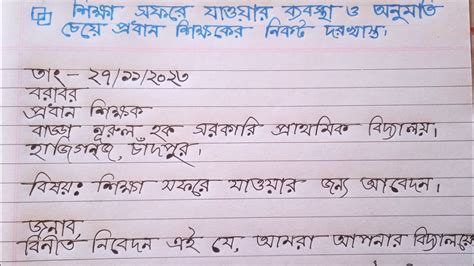 শিক্ষা সফরে যাওয়ার ব্যবস্থা ও অনুমতি
চেয়ে প্রধান শিক্ষকের নিকট দরখাস্ত।
তাং - ২৭/১১/২০২৩
বরাবর
প্রধান শিক্ষক
বাড্ডা নূরুল হক সরকারি প্রাথমিক বিদ্যালয়।
হাজিগঞ্জ, চাঁদপুর।
বিষয়: শিক্ষা সফরে যাওয়ার জন্য আবেদন।
জনাব,
বিনীত নিবেদন এই যে, আমরা আপনার বিদ্যালয়ের